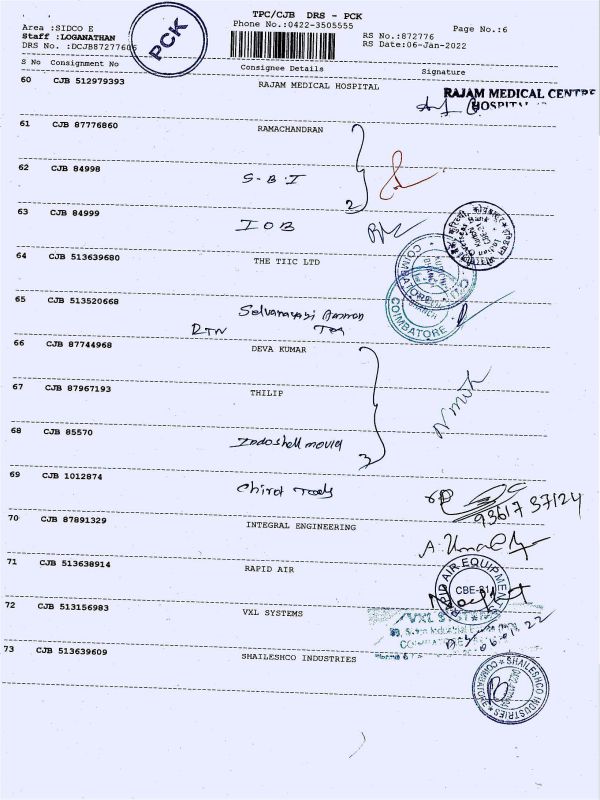 TPC/CJB DRS - PCK
Area :SIDCO E
Phone No.:0422-3505555
Page No.:6
Staff :LOGANATHAN
RS No.:872776
DRS No. :DCJB87277606
RS Date:06-Jan-2022
PCK
S No Consignment No Consignee Details Signature
60 CJB 512979393 RAJAM MEDICAL HOSPITAL
RAJAM MEDICAL CENTRE
HOSPITAL
61 CJB 87776860 RAMACHANDRAN
62 CJB 84998 S-B-I
2
63 CJB 84999 IOB
64 CJB 513639680 THE TIIC LTD
COIMBATORE
BRANCH
65 CJB 513520668
COIMBATORE
RTN
66 CJB 87744968 DEVA KUMAR
67 CJB 87967193 THILIP
68 CJB 85570
3
69 CJB 1012874
93617 37124
70 CJB 87891329 INTEGRAL ENGINEERING
71 CJB 513638914 RAPID AIR
RAPID AIR EQUIPMENTS
CBE-21
72 CJB 513156983 VXL SYSTEMS
VXL SYSTEMS
73 CJB 513639609 SHAILESHCO INDUSTRIES
SHAILESHCO INDUSTRIES
COIMBATORE